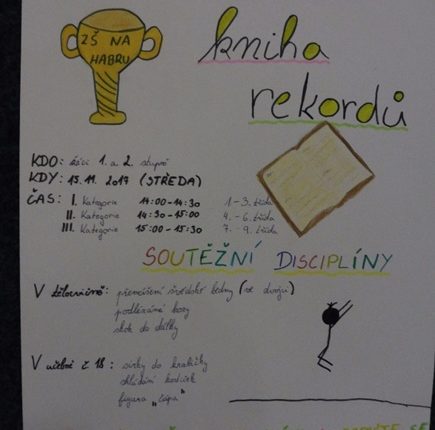 ZŠ NA
HABRU
kniha
rekordů
KDO: žáci 1. a 2. stupně
KDY: 15.11.2017 (STŘEDA)
ČAS: I. Kategorie 14:00-14:30 1.-3. třída
II. Kategorie 14:30-15:00 4.-6. třída
III. Kategorie 15:00-15:30 7.-9. třída
SOUTĚŽNÍ DISCIPLÍNY
V tělocvičně: přenášení švédské bedny (ve dvojici)
podlézání kozy
skok do dálky
V učebně č 18: sirky do krabičky
skládání kostek
figura "čápa"